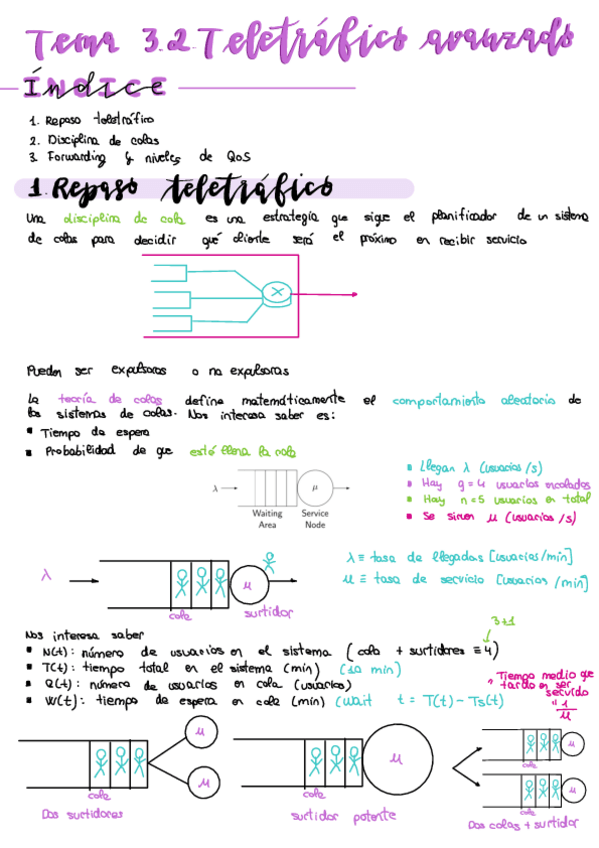 Tema 3.2. Teletráfico avanzado
ÍNDICE
1. Repaso teletráfico
2. Disciplina de colas
3. Forwarding y niveles de QoS
1. Repaso teletráfico
Una disciplina de cola es una estrategia que sigue el planificador de un sistema
de colas para decidir qué cliente será el próximo en recibir servicio
Pueden ser expulsoras o no expulsoras
La teoría de colas define matemáticamente el comportamiento aleatorio de
los sistemas de colas. Nos interesa saber es:
▪ Tiempo de espera
▪ Probabilidad de que esté llena la cola
λ
μ
Waiting Area
Service Node
▪ Llegan λ (usuarios/s)
▪ Hay q=4 usuarios encolados
▪ Hay n=5 usuarios en total
▪ Se sirven μ (usuarios/s)
λ
μ
cola
surtidor
λ ≡ tasa de llegadas [usuarios/min]
μ ≡ tasa de servicio [usuarios/min]
3+1
Nos interesa saber
▪ N(t): número de usuarios en el sistema (cola + surtidores ≡ 4)
▪ T(t): tiempo total en el sistema (min) (10 min)
▪ Q(t): número de usuarios en cola (usuarios)
▪ W(t): tiempo de espera en cola (min) (wait t = T(t) - Ts(t)
Tiempo medio que
tardo en ser
servido
"1
μ
μ
μ
cola
Dos surtidores
μ
cola
surtidor potente
μ
cola
μ
cola
Dos colas + surtidor